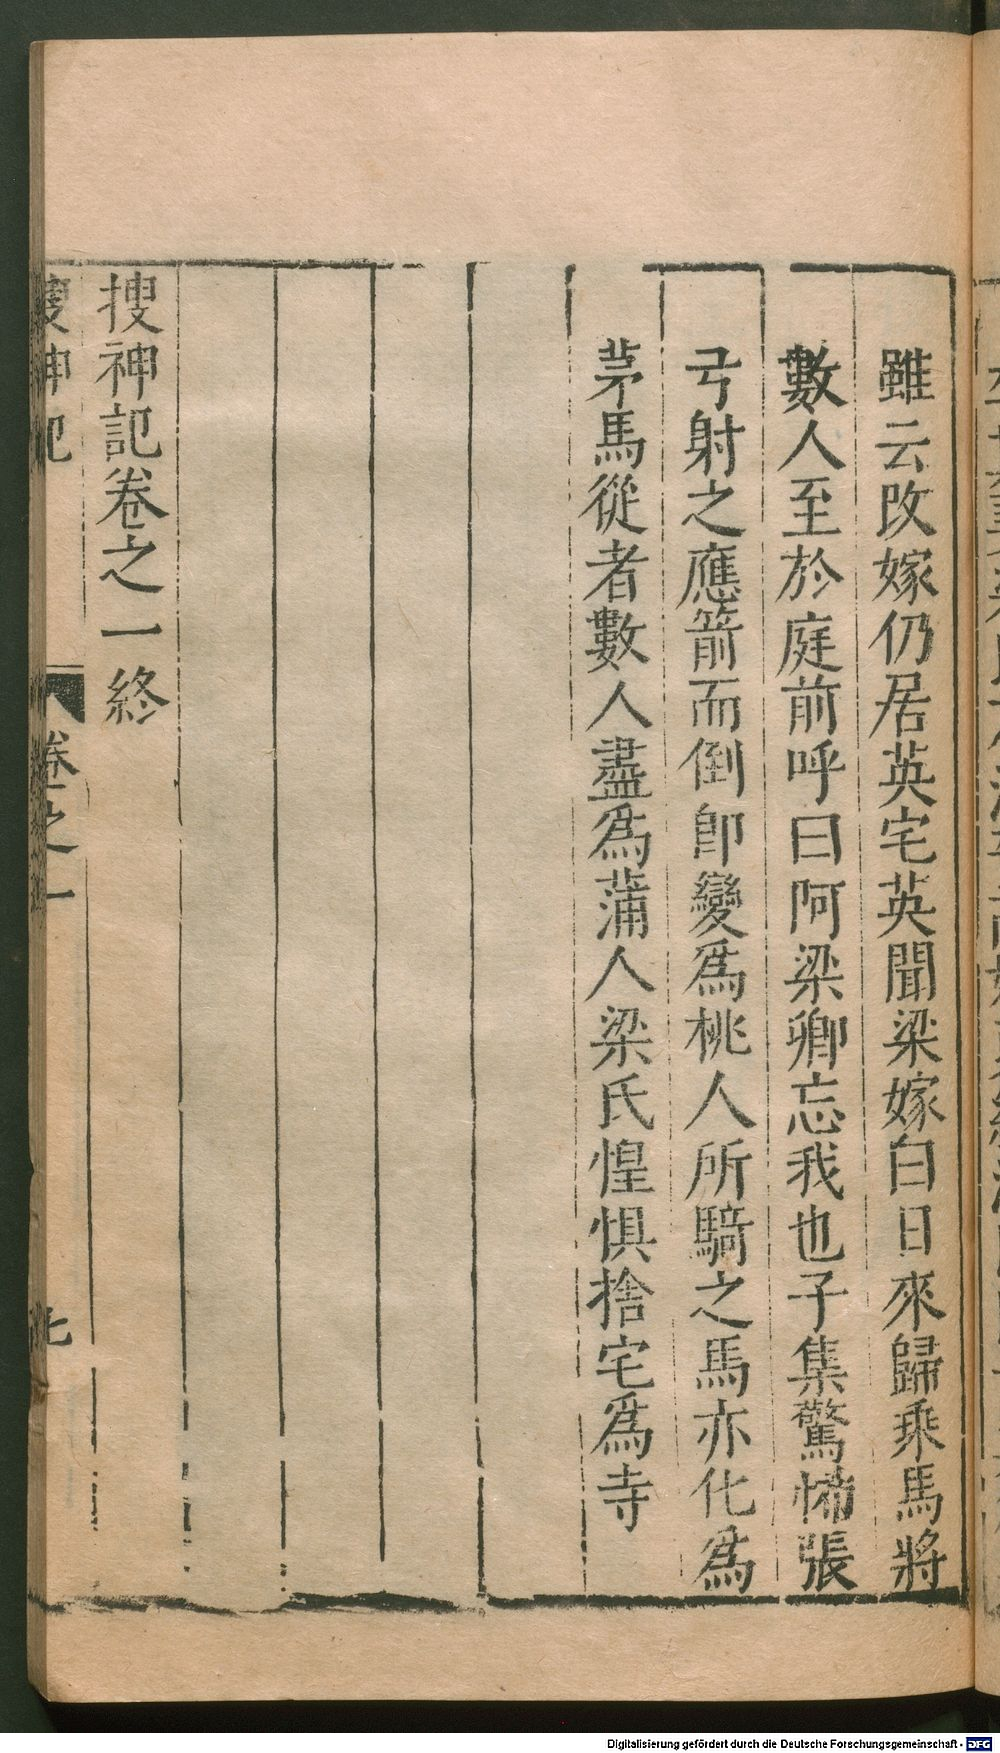 雖云改嫁仍居英宅英聞梁嫁白日來歸乘馬將
數人至於庭前呼曰阿梁卿忘我也子集驚怖張
弓射之應箭而倒卽變爲桃人所騎之馬亦化爲
茅馬從者數人盡爲蒲人梁氏惶惧捨宅爲寺
搜神記卷之一終
搜神記
卷之一
Digitalisierung gefördert durch die Deutsche Forschungsgemeinschaft - DFG